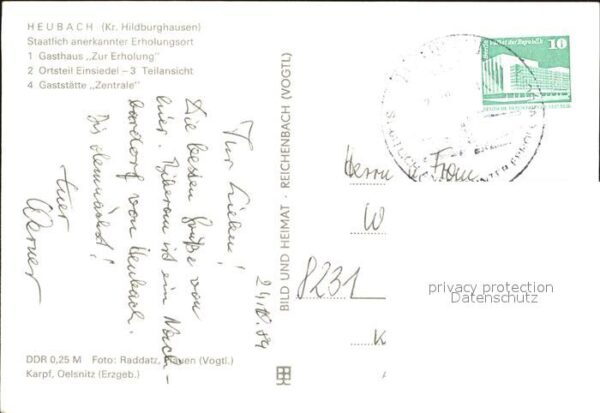 HEUBACH (Kr. Hildburghausen)
Staatlich anerkannter Erholungsort
1 Gasthaus „Zur Erholung"
2 Ortsteil Einsiedel – 3 Teilansicht
4 Gaststätte „Zentrale"
24.10.84
Ihr Lieben!
Die besten Grüße von
hier. Biberau ist ein Nach-
bardorf von Heubach.
Bis demnächst!
Euer
Werner
DDR 0,25 M Foto: Raddatz, Plauen (Vogtl.)
Karpf, Oelsnitz (Erzgeb.)
BILD UND HEIMAT · REICHENBACH (VOGTL)
10
Palast der Republik
Herrn u. Frau
W
8231
K
privacy protection
Datenschutz